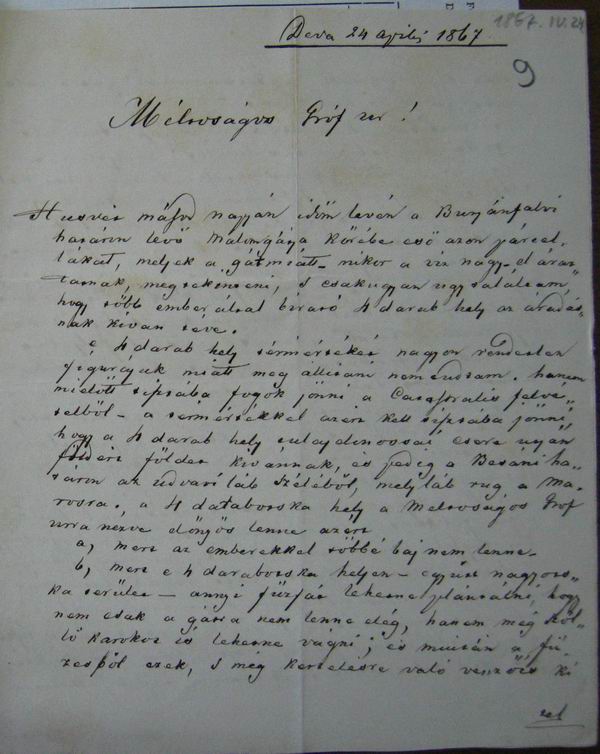 Deva 24 april 1867
1867. IV. 24
9
Méltoságos Gróf ur!
Husvét másod napján időm levén a Bunyánfalvi
határon levő Malomgátja körébe eső azon párcel„
lákat, melyek a gát miatt mikor a viz nagy
megtekinteni, s csakugyan ugy találtam,
hogy több ember által birató 4 darab hely az áradás„
nak kivan téve.
E 4 darab hely térmértékét nagyon rendetlen
figurájuk miatt meg állitani nem tudtam, hanem
mielőtt tiptába fogok jönni a felvé„
telből – a térmértékkel azért kell tiptába jönni,
hogy a 4 darab hely tulajdonossai csere utján
földért földet kivánnak, és pedig a Betáni ha„
táron az udvari láb széléből, mely láb rug a Ma„
rosra, a 4 hely a Méltoságos Gróf
urra nézve lenne azért
a, mert az emberekkel többé baj nem lenne.
b, mert e 4 darabotska helyen – együtt nagyots„
ka terület – annyi fűzfát lehetne plantálni, hogy
nem csak a gátra nem lenne elég, hanem még szöl„
lő karokot is lehetne vágni; és miután a fü„
zesből ezek, s még kertelésre való vessző is ki